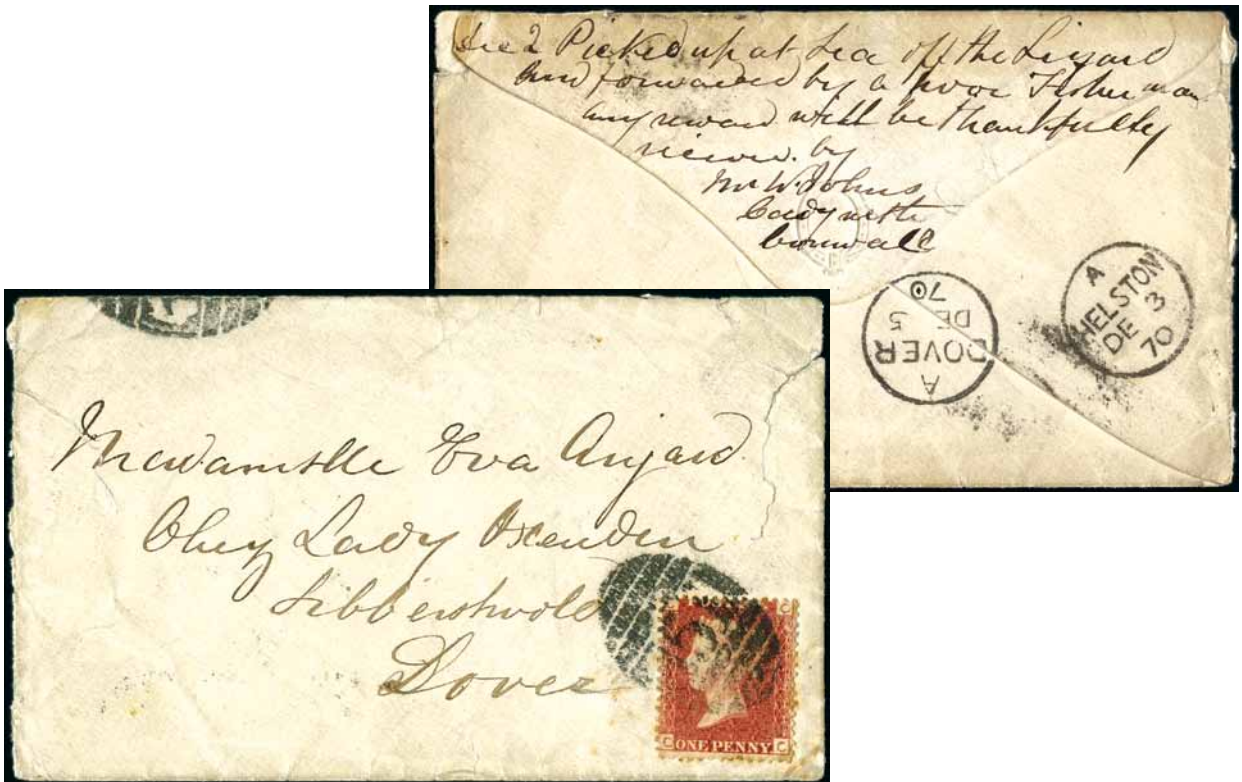 Dec 2 Picked up at Sea off the Lizard
and forwarded by a poor Fisher man
any reward will be thankfully
by
Mr W. Johns
Cadgwith
Cornwall
A
HELSTON
DE 3
70
A
DOVER
DE 5
70
Madamslle Eva Anjard
Chez Lady Oxenden
Sibbertswold
Dover
C C
ONE PENNY